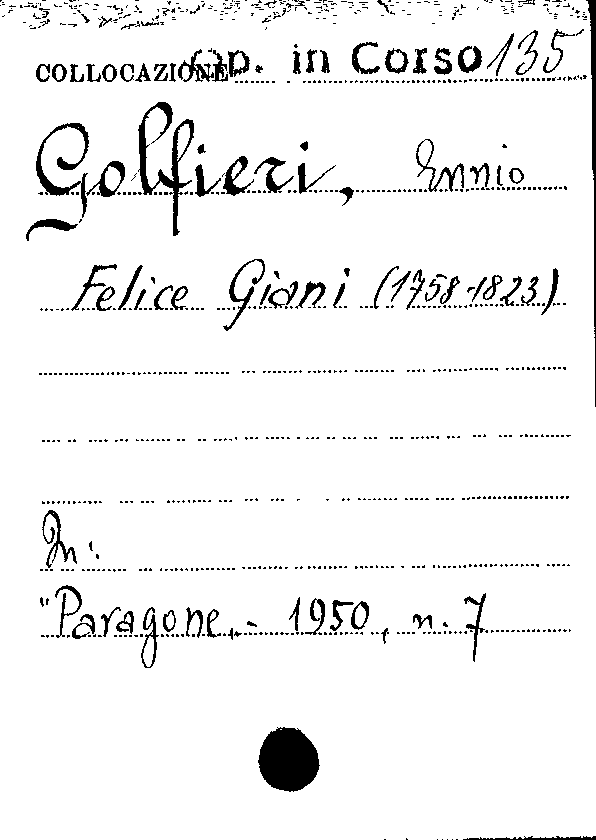 COLLOCAZIONE Op. in Corso 135
Golfieri, Ennio
Felice Giani (1758-1823)
In:
"Paragone„ - 1950, n. 7